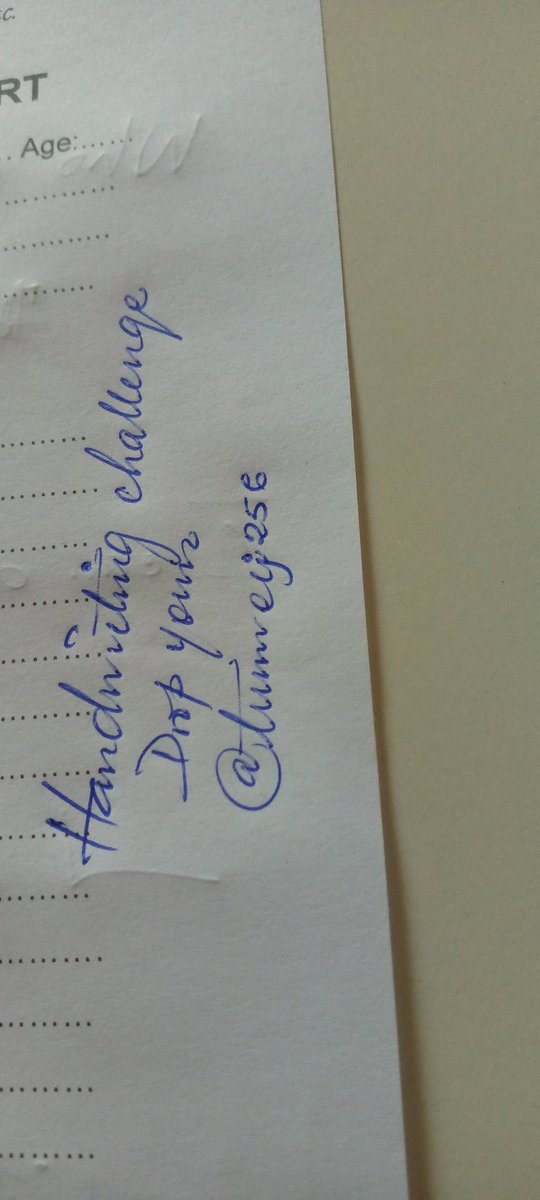 RT
Age:
Handwriting challenge
Drop your
@tumweij256